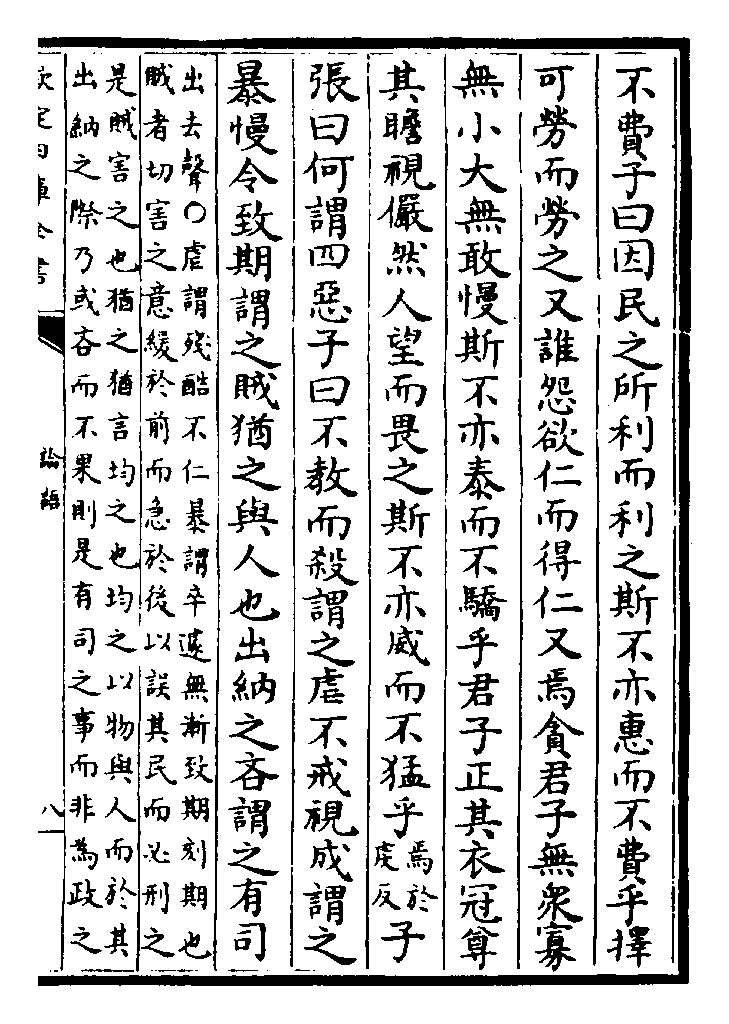 不費子曰因民之所利而利之斯不亦惠而不費乎擇
可勞而勞之又誰怨欲仁而得仁又焉貪君子無衆寡
無小大無敢慢斯不亦泰而不驕乎君子正其衣冠尊
其瞻視儼然人望而畏之斯不亦威而不猛乎焉於虔反子
張曰何謂四惡子曰不教而殺謂之虐不戒視成謂之
暴慢令致期謂之賊猶之與人也出納之吝謂之有司
出去聲○虐謂殘酷不仁暴謂卒遽無漸致期刻期也
賊者切害之意緩於前而急於後以誤其民而必刑之
是賊害之也猶之猶言均之也均之以物與人而於其
出納之際乃或吝而不果則是有司之事而非為政之
欽定四庫全書
論語
八